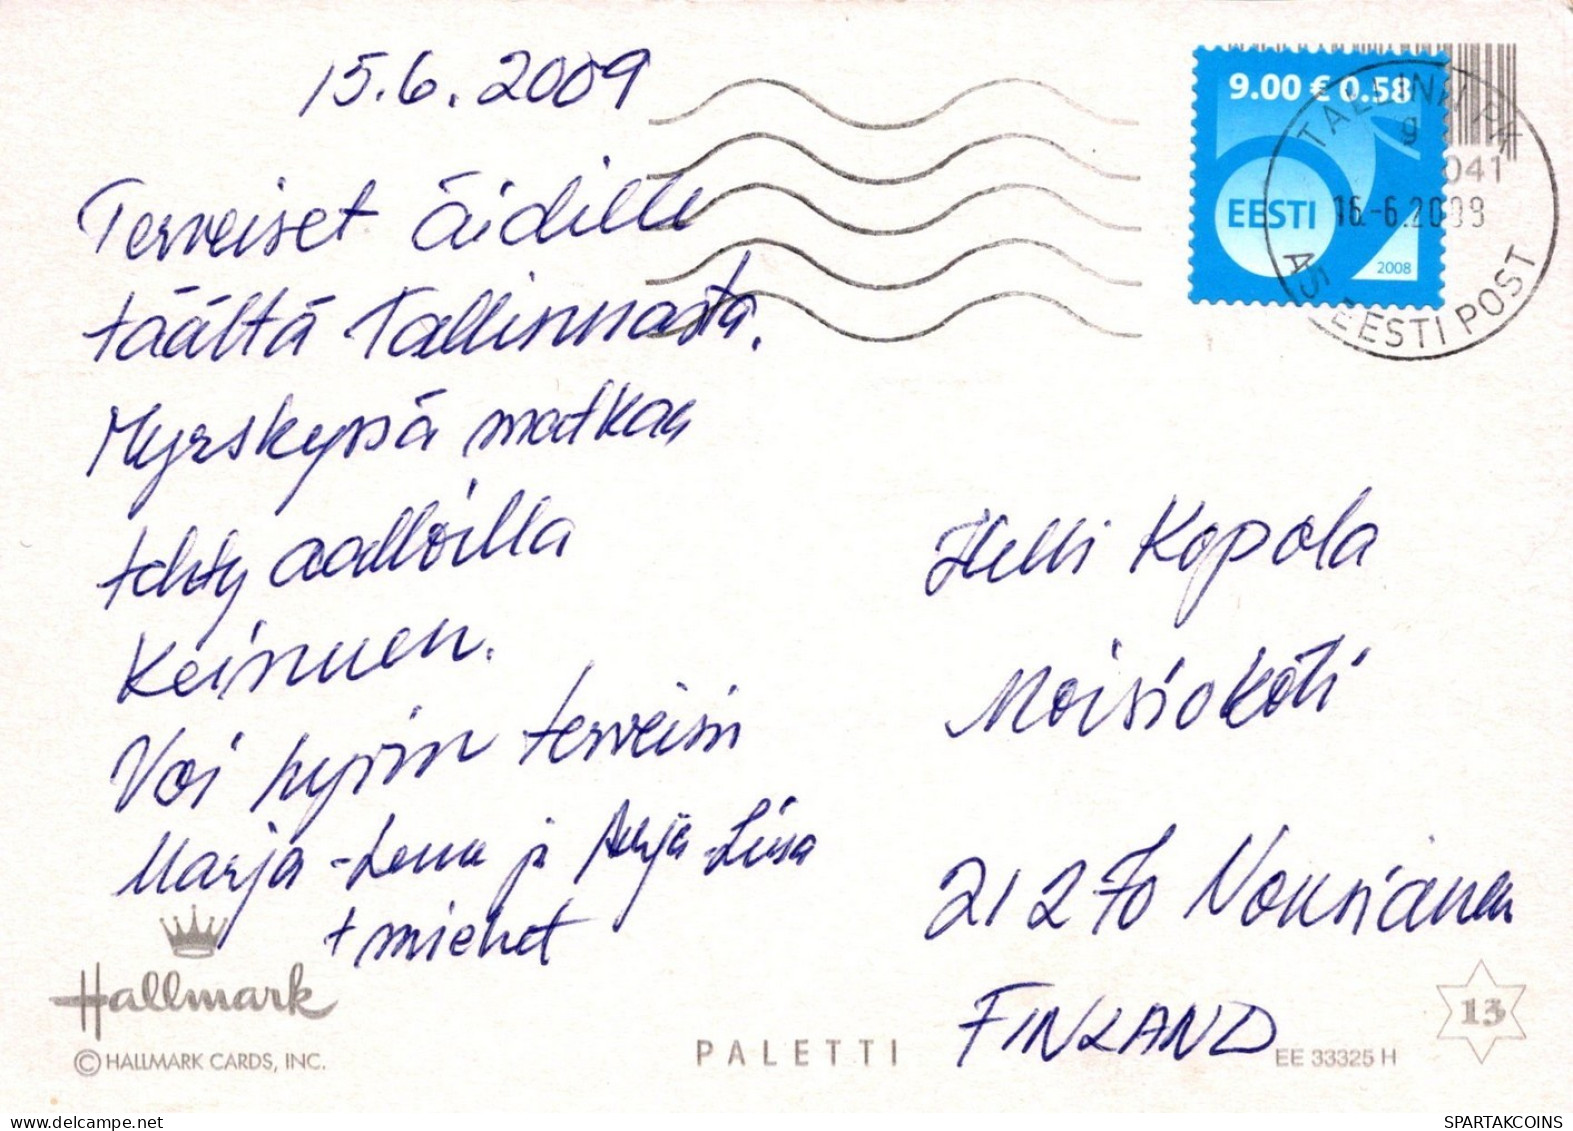 15.6.2009
Terveiset äidille
täältä Tallinnasta.
Myrskyssä matkaa
tehty aalloilla
Keinuen.
Voi hyvin terveisin
Marja-Leena ja Arja-Liisa
+ miehet
9.00 € 0.58
EESTI
2008
TALLINN PK
g
041
16.-6.2009
AS EESTI POST
Helli Kopola
Moisiokoti
21270 Nousiainen
FINLAND
Hallmark
© HALLMARK CARDS, INC.
PALETTI
EE 33325 H
13
SPARTAKCOINS
www.delcampe.net